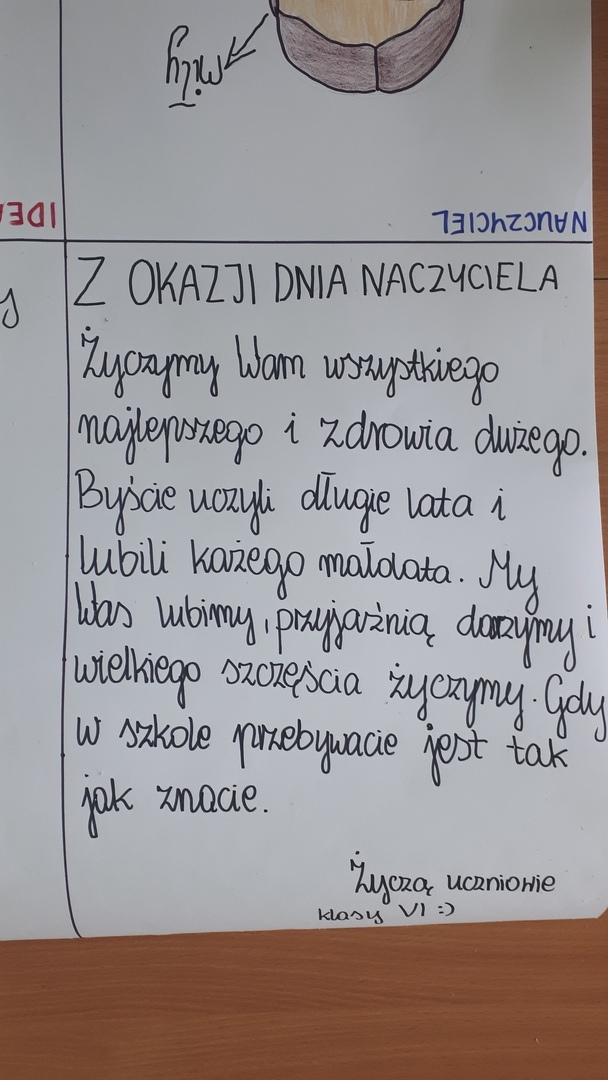 miły
IDEA
NAUCZYCIEL
Z OKAZJI DNIA NACZYCIELA
Życzymy Wam wszystkiego
najlepszego i zdrowia dużego.
Byście uczyli długie lata i
lubili każego małolata. My
Was lubimy, przyjaźnią darzymy i
wielkiego szczęścia życzymy. Gdy
w szkole przebywacie jest tak
jak znacie.
Życzą uczniowie
klasy VI :)